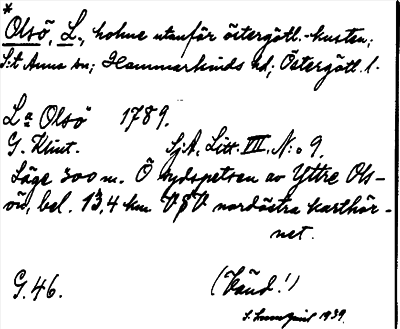 *
Olsö, L., holme utanför östergötl.-kusten;
S:t Anna sn; Hammarkinds hd; Östergötl. l.
L:a Olsö 1789.
G. Klint. SjA, Litt. III, N:o 9.
Läge 300 m. Ö sydspetsen av Yttre Ols-
ön, bel. 13,4 km V§V nordöstra karthör-
net.
G. 46. (Vänd!)
1939.